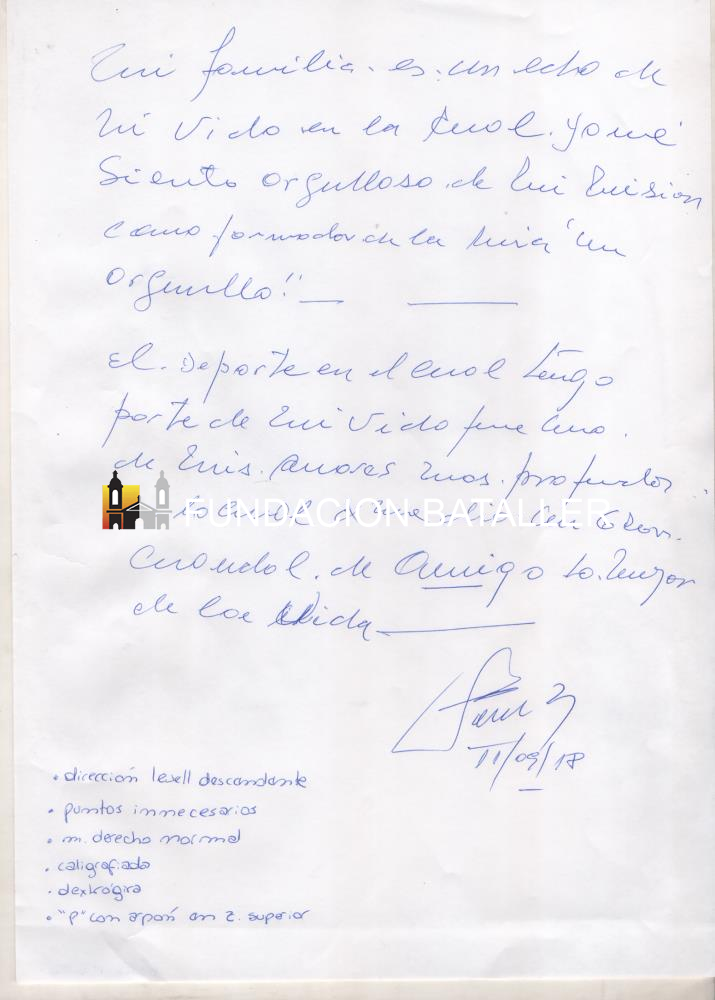 Mi familia. es. un echo de
mi vida en la cual. yo me
Siento orgulloso. de mi mision
como formador de la mia "un
orgullo" —
El. Deporte en el cual tengo
parte de mi vida fue uno.
de mis. Amores mas. profundos
FUNDACION BATALLER
lo cual
de Amigo lo. mejor
de la Vida
11/09/18
• dirección level descendante
• puntos innecesarios
• m. derecho normal
• caligrafiada
• dextrógira
• "p" con arpón en z. superior